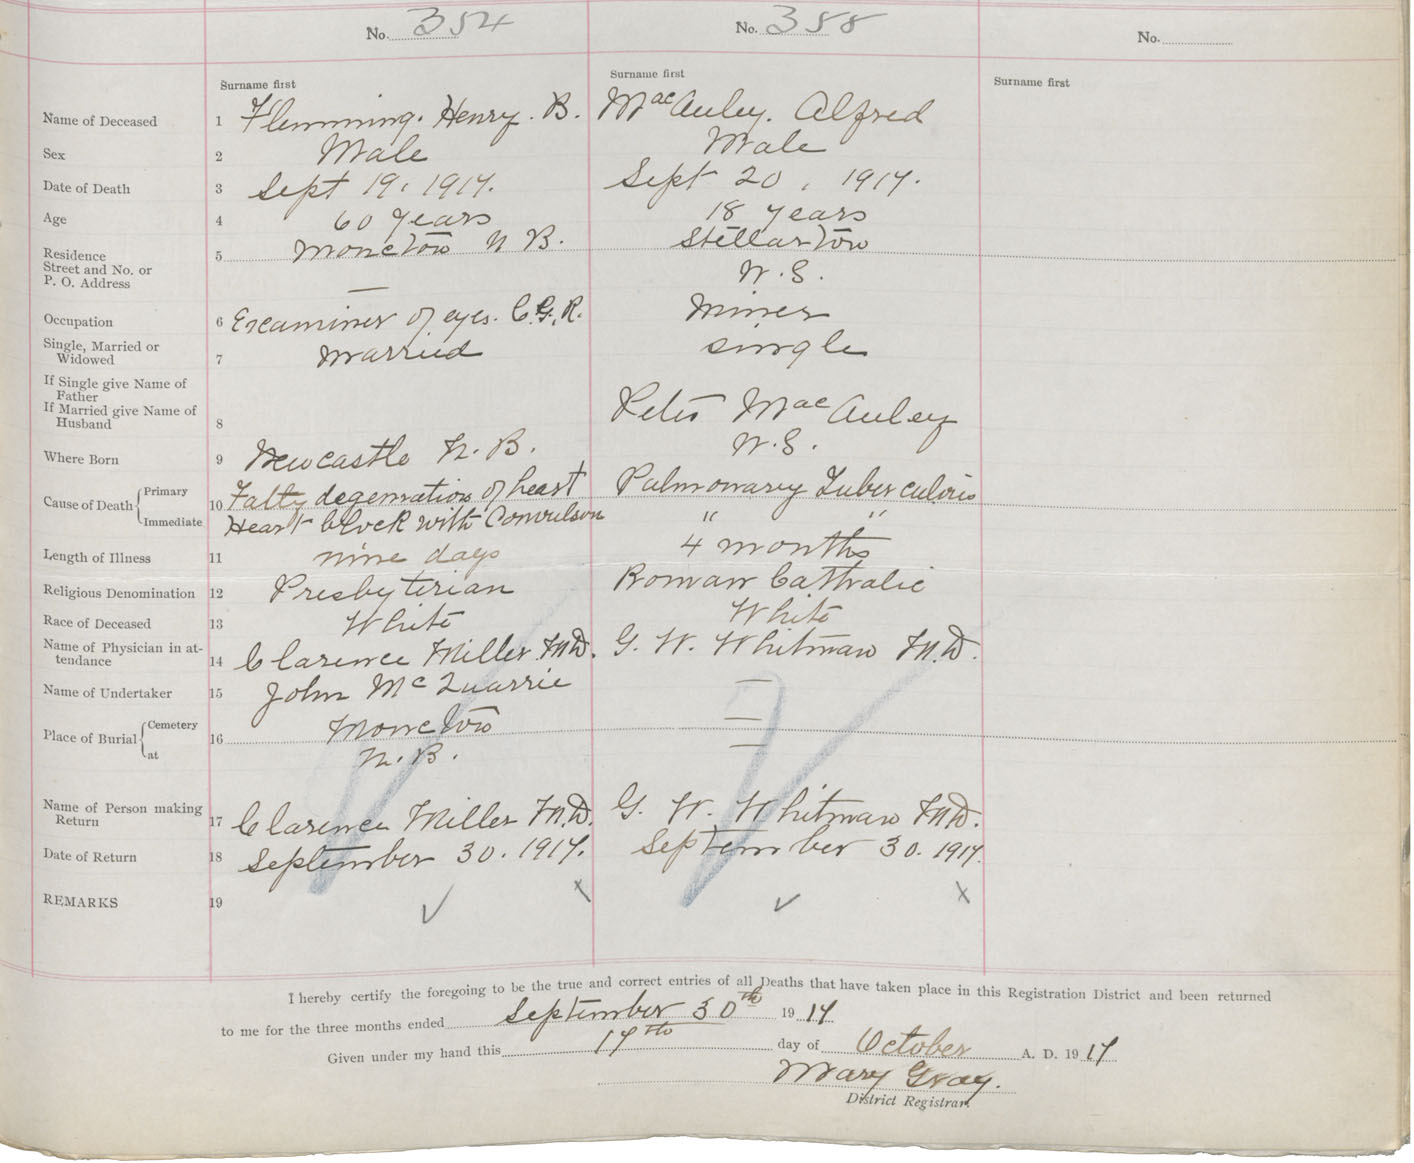 No. 354 No. 358 No.
Surname first Surname first Surname first
Name of Deceased 1 Flemming. Henry. B. MacAuley. Alfred
Sex 2 Male Male
Date of Death 3 Sept 19, 1917. Sept 20, 1917.
Age 4 60 years 18 years
Residence 5 Moncton N B. Stellarton
Street and No. or
P. O. Address — N.S.
Occupation 6 Examiner of eyes. C.G.R. Miner
Single, Married or
Widowed 7 Married single
If Single give Name of
Father
If Married give Name of Peter MacAuley
Husband 8
Where Born 9 Newcastle N.B. N.S.
Cause of Death { Primary 10 Fatty degenration of heart Pulmonary Tuberculoris
Immediate Heart block with Convulson " "
Length of Illness 11 nine days 4 months
Religious Denomination 12 Presbyterian Roman Catholic
Race of Deceased 13 White White
Name of Physician in at-
tendance 14 Clarence Miller M.D. G. W. Whitman M.D.
Name of Undertaker 15 John McQuarrie —
Place of Burial { Cemetery 16 Moncton —
at N.B. —
Name of Person making
Return 17 Clarence Miller M.D. G. W. Whitman M.D.
Date of Return 18 September 30. 1917. September 30. 1917.
REMARKS 19 ✓ x ✓ x
I hereby certify the foregoing to be the true and correct entries of all Deaths that have taken place in this Registration District and been returned
to me for the three months ended September 30th 1917
Given under my hand this 17th day of October A. D. 1917
Mary Gray.
District Registrar.